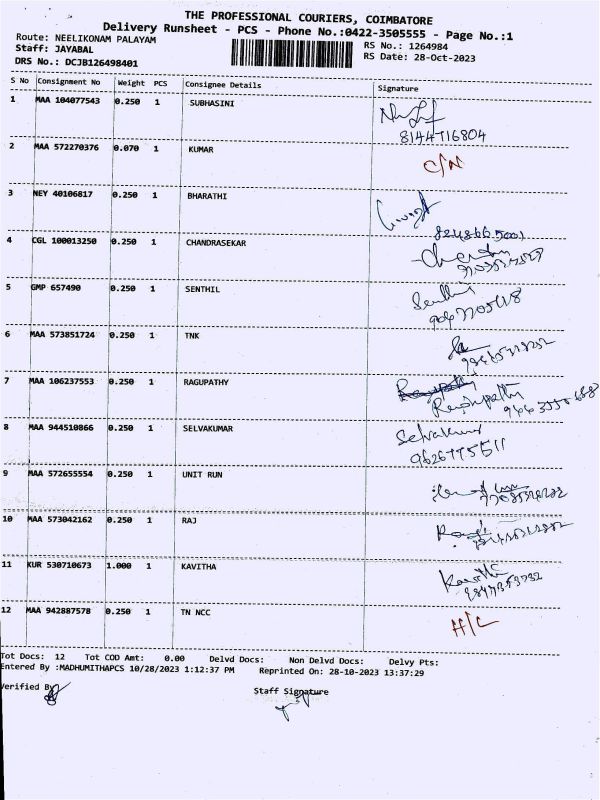 THE PROFESSIONAL COURIERS, COIMBATORE
Delivery Runsheet - PCS - Phone No.:0422-3505555 - Page No.:1
Route: NEELIKONAM PALAYAM
RS No.: 1264984
Staff: JAYABAL
RS Date: 28-Oct-2023
DRS No.: DCJB126498401
S No Consignment No Weight PCS Consignee Details Signature
1 MAA 104077543 0.250 1 SUBHASINI
8144716804
2 MAA 572270376 0.070 1 KUMAR C/N
3 NEY 40106817 0.250 1 BHARATHI
4 CGL 100013250 0.250 1 CHANDRASEKAR
5 GMP 657490 0.250 1 SENTHIL Senthil
6 MAA 573851724 0.250 1 TNK
7 MAA 106237553 0.250 1 RAGUPATHY
Ragupathy
8 MAA 944510866 0.250 1 SELVAKUMAR Selvakumar
9626775511
9 MAA 572655554 0.250 1 UNIT RUN
10 MAA 573042162 0.250 1 RAJ
11 KUR 530710673 1.000 1 KAVITHA Kavitha
12 MAA 942887578 0.250 1 TN NCC H/L
Tot Docs: 12 Tot COD Amt: 0.00 Delvd Docs: Non Delvd Docs: Delvy Pts:
Entered By :MADHUMITHAPCS 10/28/2023 1:12:37 PM Reprinted On: 28-10-2023 13:37:29
Verified By Staff Signature